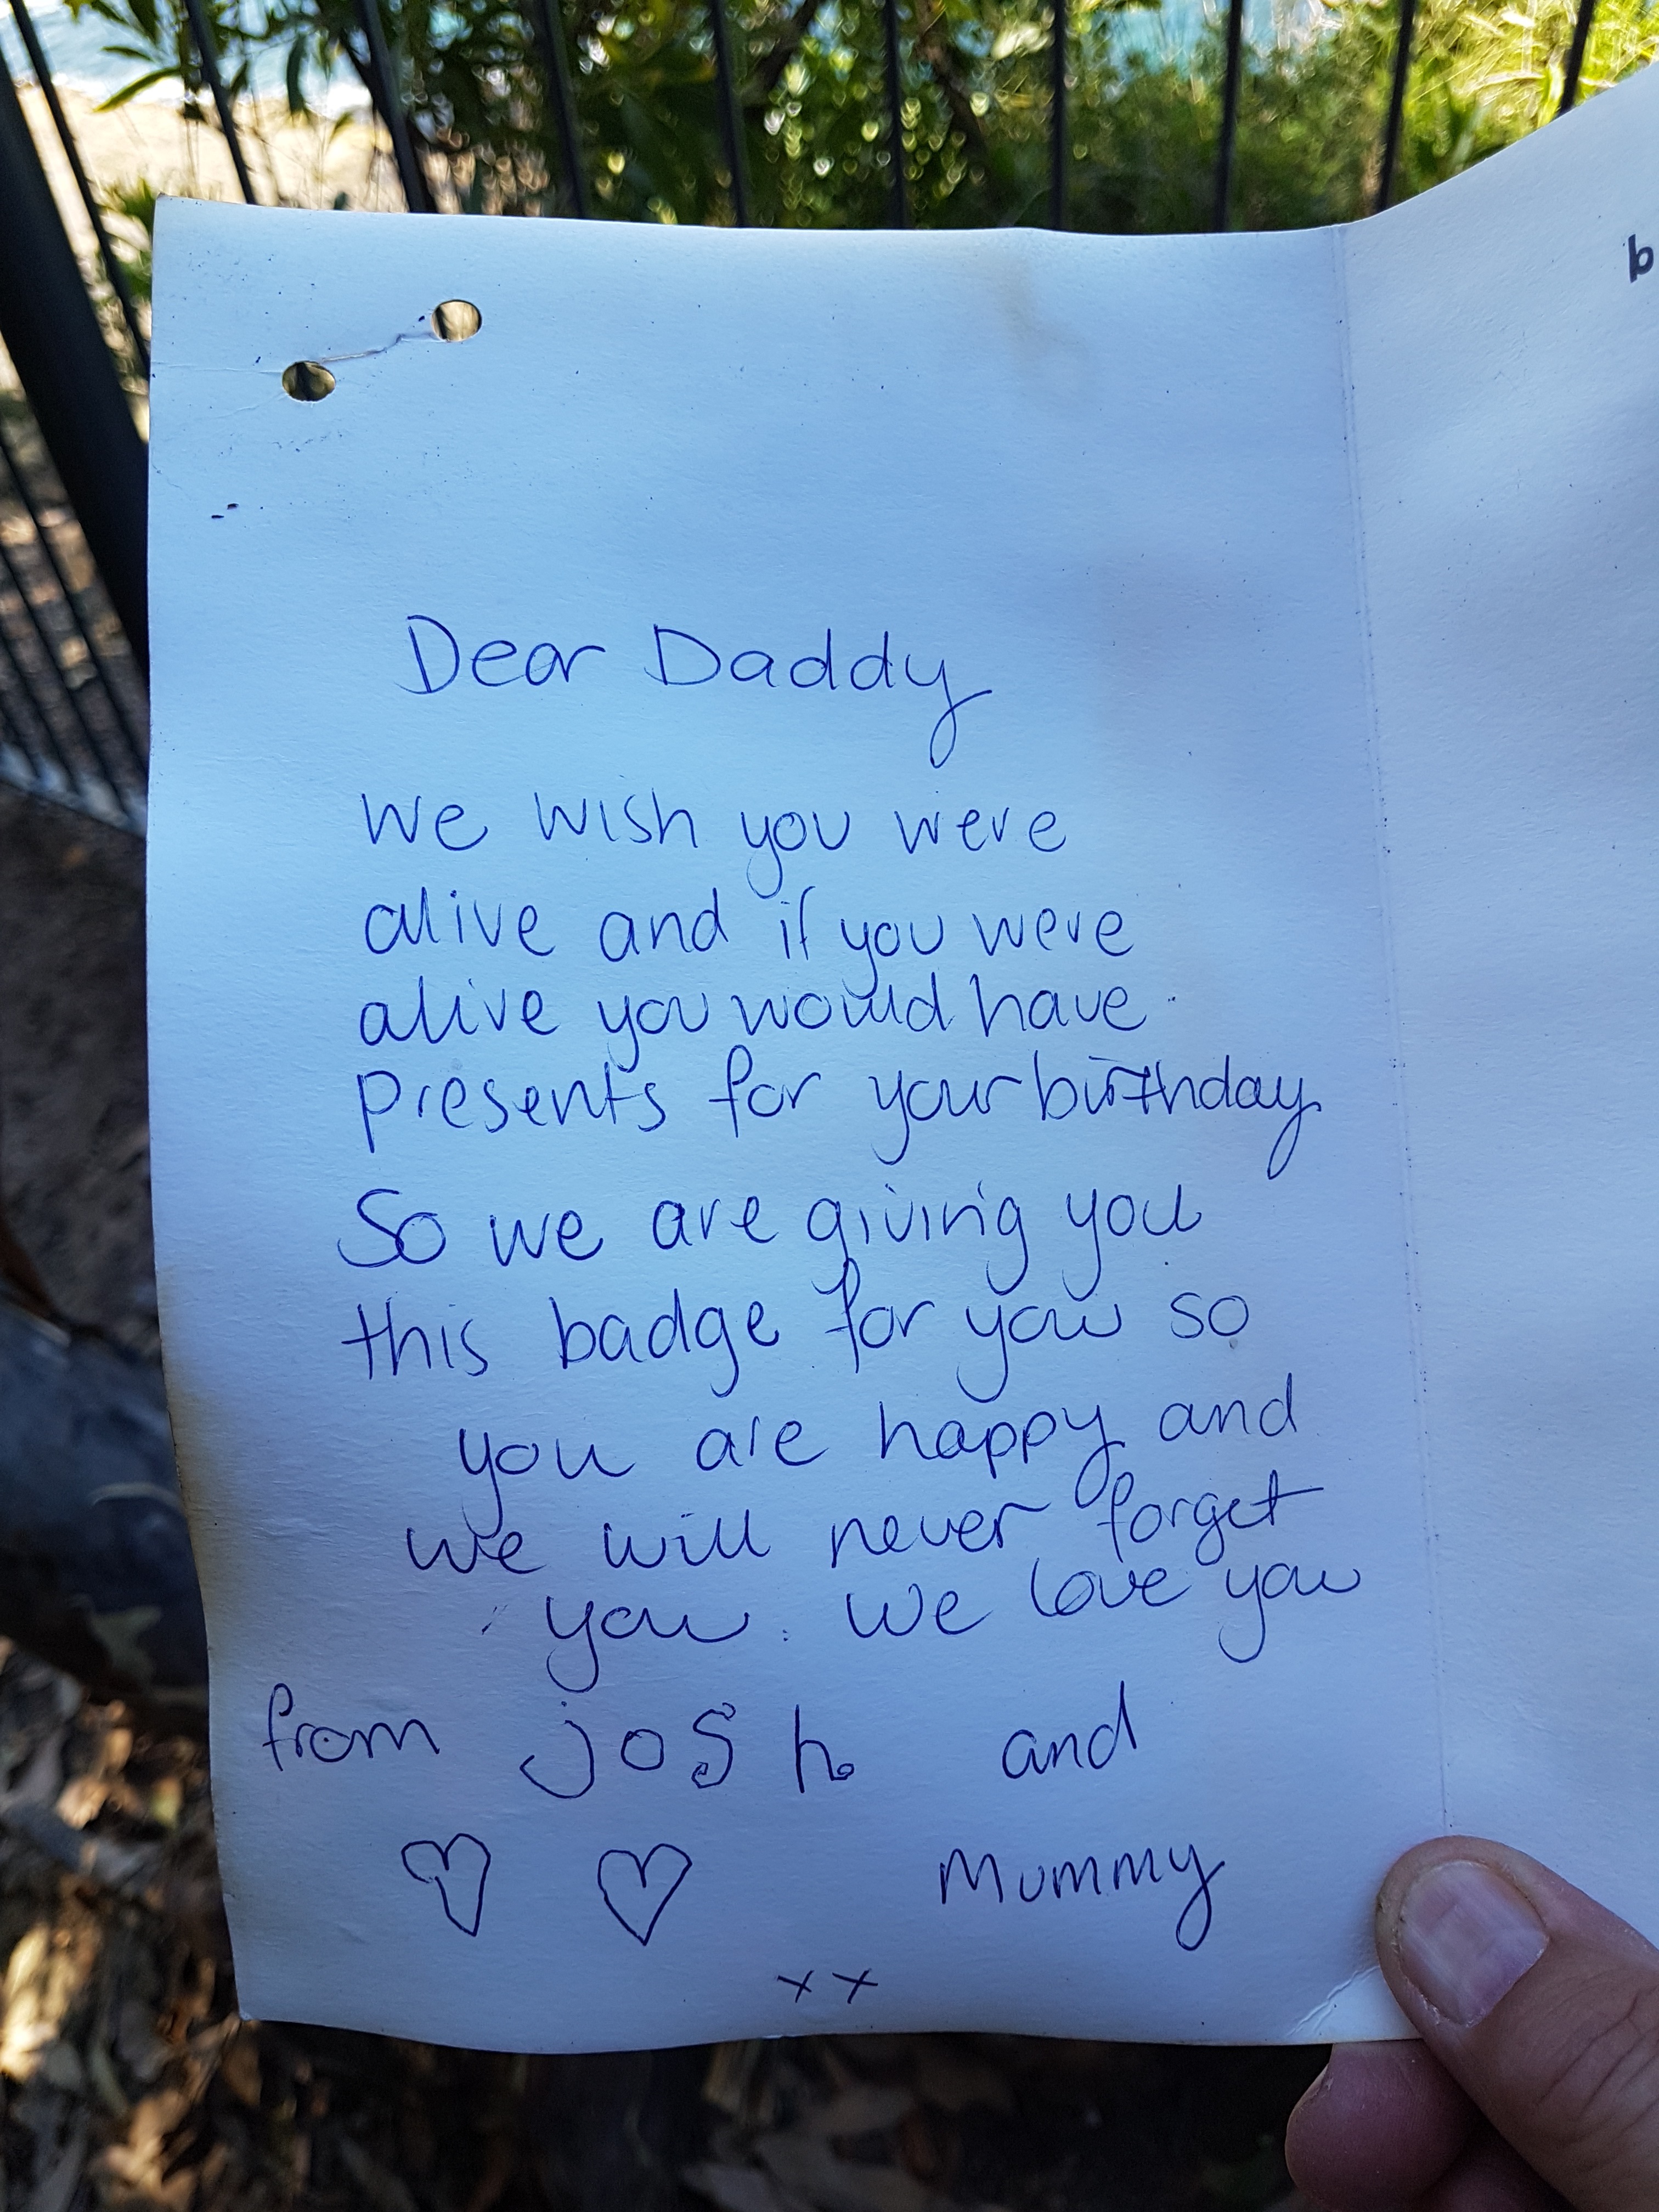 b
Dear Daddy
We wish you were
alive and if you were
alive you would have
presents for your birthday
So we are giving you
this badge for you so
you are happy and
we will never forget
you. We love you
from josh and
Mummy
xx